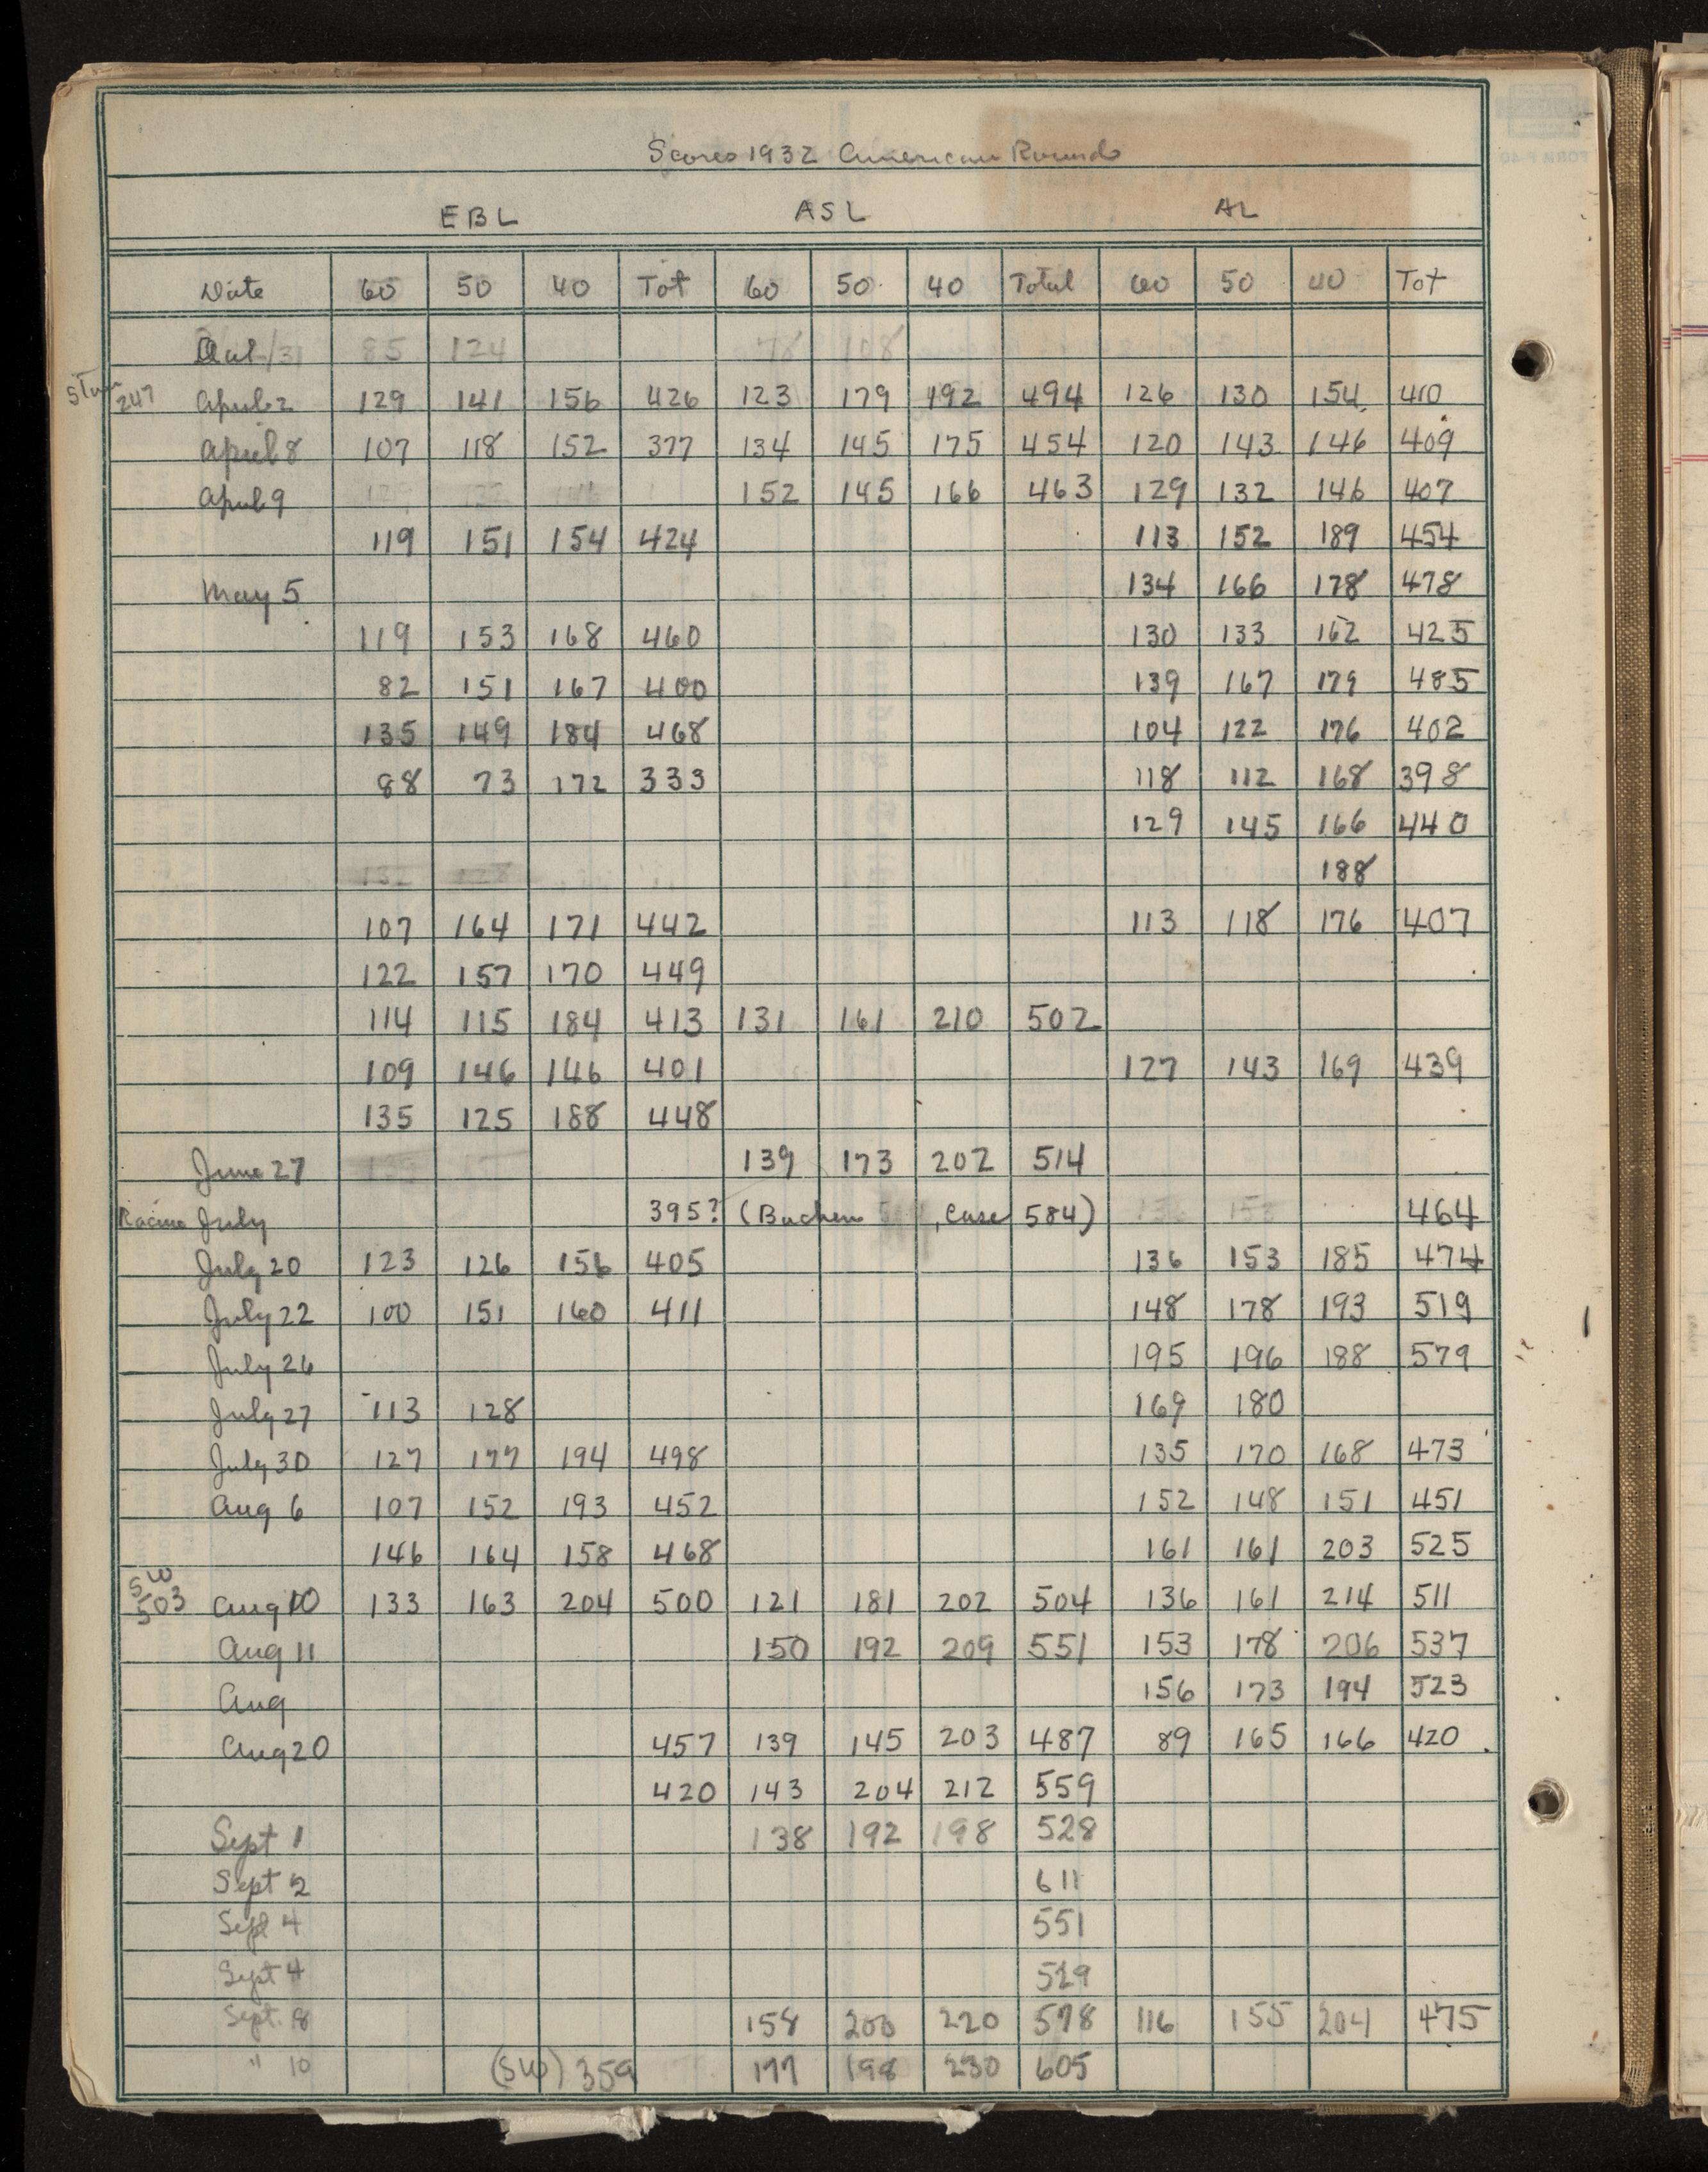 Scores 1932 American Rounds
EBL ASL AL
Date 60 50 40 Tot 60 50 40 Total 60 50 40 Tot
/31 85 124 78 108
247 April 2 129 141 156 426 123 179 192 494 126 130 154 410
April 8 107 118 152 377 134 145 175 454 120 143 146 409
April 9 152 145 166 463 129 132 146 407
119 151 154 424 113 152 189 454
May 5 134 166 178 478
119 153 168 460 130 133 162 425
82 151 167 400 139 167 179 485
135 149 184 468 104 122 176 402
88 73 172 333 118 112 168 398
129 145 166 440
132 128 188
107 164 171 442 113 118 176 407
122 157 170 449
114 115 184 413 131 161 210 502
109 146 146 401 127 143 169 439
135 125 188 448
June 27 139 173 202 514
Racine July 395? (Buchen , Case 584) 136 153 464
July 20 123 126 156 405 136 153 185 474
July 22 100 151 160 411 148 178 193 519
July 26 195 196 188 579
July 27 113 128 169 180
July 30 127 177 194 498 135 170 168 473
Aug 6 107 152 193 452 152 148 151 451
146 164 158 468 161 161 203 525
SW
503 Aug 10 133 163 204 500 121 181 202 504 136 161 214 511
Aug 11 150 192 209 551 153 178 206 537
Aug 156 173 194 523
Aug 20 457 139 145 203 487 89 165 166 420
420 143 204 212 559
Sept 1 138 192 198 528
Sept 2 611
Sept 4 551
Sept 4 529
Sept. 8 158 200 220 578 116 155 204 475
" 10 (SW) 359 177 198 230 605
FORM P40